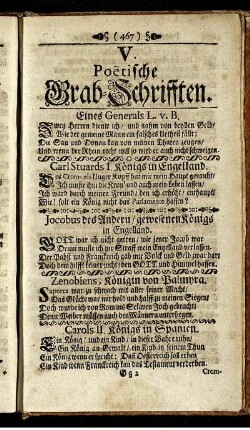 ( 467 )
V.
Poëtische
Grab-Schrifften.
Eines Generals L. v. B.
Zwey Herren diente ich / und nahm von beyden Geld /
Wie der gemeine Mann ein falsches Urtheil fällt;
Die Sau und Donau kan von meinen Thaten zeugen /
Und wenn der Rhein nicht will so wird er auch nicht schweigen.
Carl Stuards I. Königs in Engelland.
ich kluger Kopff hat mir mein Haupt geraubt /
Ich muste ihm die Kron' und auch mein Leben lassen:
Ich ward durch meinen Feind erhöht / enthaupt
Wie! solt ein König nicht das Parlament hassen?
Jocobus des Andern / gewesenen Königs
in Engelland.
GOTT war ich nicht getreu / wie jener Jacob war
Drum muste ich zur Straff mein Engelland verlassen.
Der Pabst und Franckreich gab mir Volck und Geld zwar dar /
Doch dem hilfft keiner nicht den GOTT und Himmel hassen.
Zenobiens / Königin von Palmyra.
war zu schwach mit aller seiner Macht /
Das Glücke war mir hold und halff zu meinen Siegen /
Doch wurde ich von Rom ins Sclaven Joch gebracht;
Denn Weiber müssen auch den Männern unterliegen.
Carols II. Königs in Spanien.
Ein König / und ein Kind / in dieser Bahre ruhn /
Ein König an Gewalt / ein Kind in seinem Thun
Ein König wenn er spricht; Daß Oesterreich soll erben
Ein Kind wenn Franckreich kan das Testament verderben.
Gg 2
Crom-